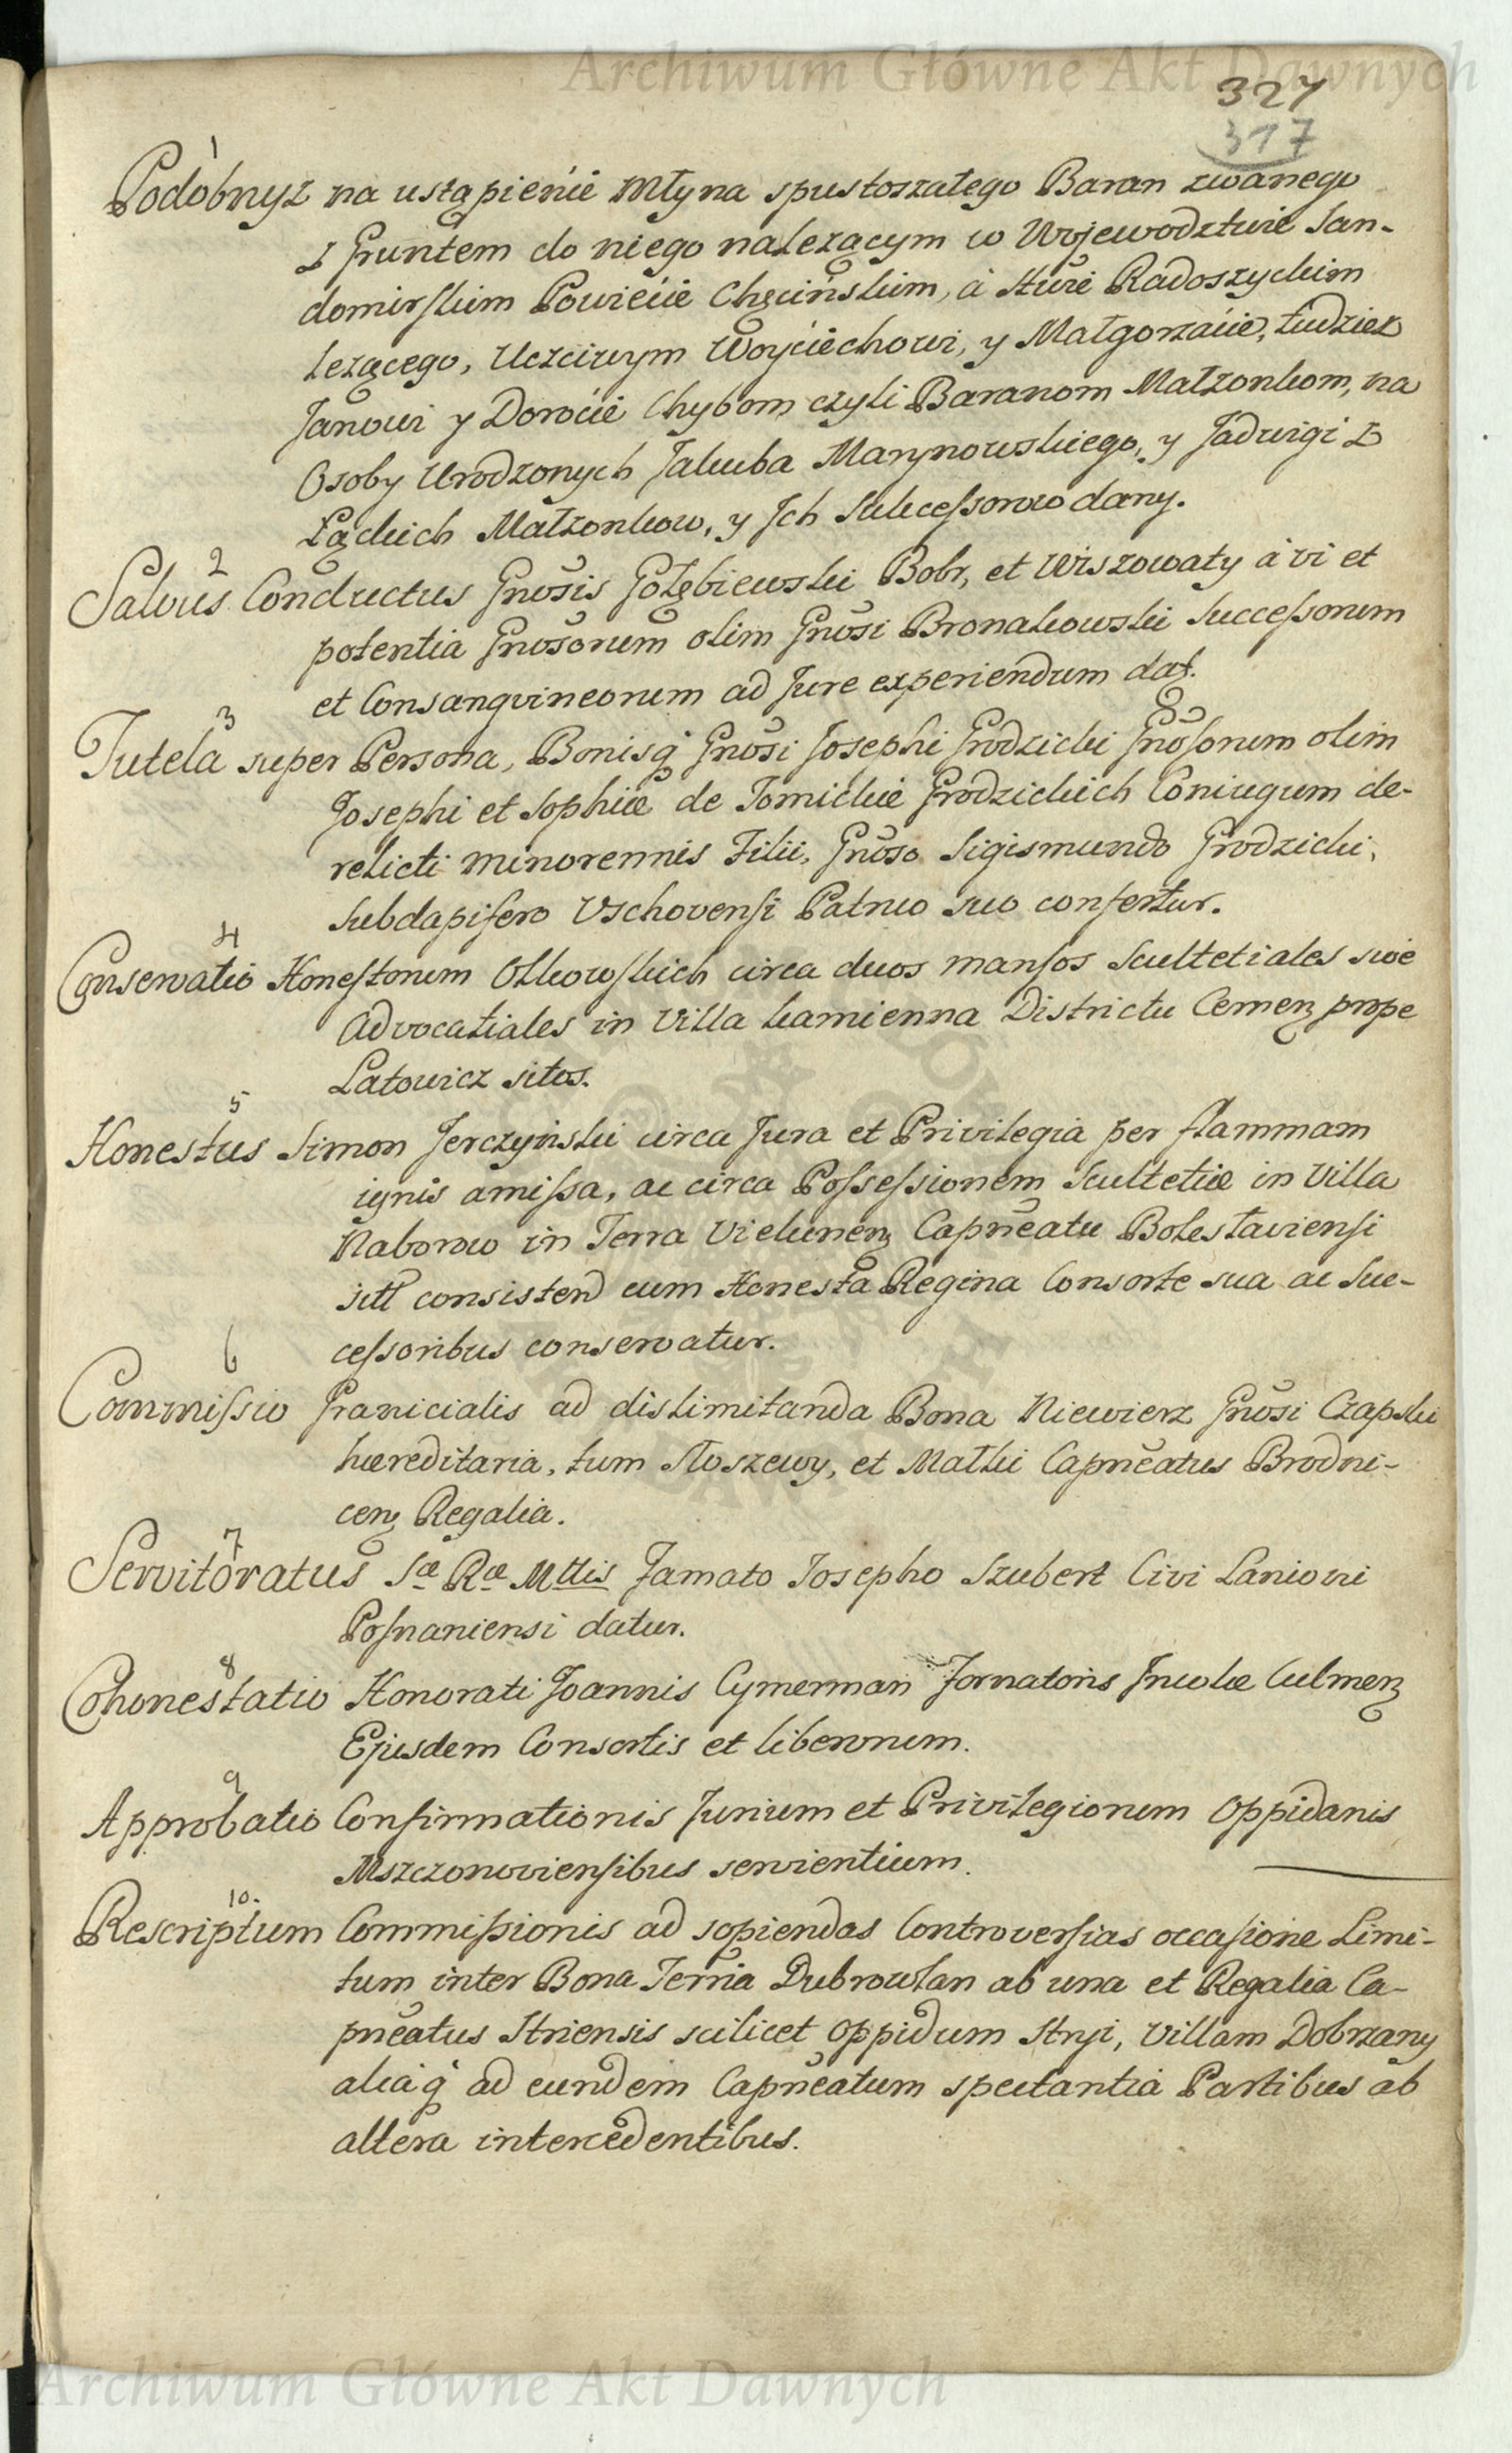 Archiwum Główne Akt Dawnych
327
317
1
Podobnyż na ustąpienie Młyna spustoszałego Baran zwanego
z Gruntem do niego nalezącym w Wojewodztwie San-
domirskim Powiecie Chęcińskim, á Stwie Radoszyckim
lezącego, Uczciwym Woyciechowi, y Małgorzacie, tudziesz
Janowi y Dorocie Chybom czyli Baranom Małzonkom, na
Osoby Urodzonych Jakuba Marynowskiego, y Jadwigi z
Łąckich Małzonkow, y Jch Sukcessorow dany.
2
Salvus Conductus Gnosis Gołębiewski Bobr, et Wiszowaty á vi et
potentia Gnosorum olim Gnosi Bronakowski Successorum
et Consangvineorum ad Jure experiendum dat.
3
Tutela super Persona, Bonisq Gnosi Josephi Grodzicki Gnosorum olim
Josephi et Sophiæ de Tomickie Grodzickich Coniugum de-
relicti minorennis Filii, Gnoso Sigismundo Grodzicki,
Subdapifero Vschovensi Patruo suo confertur.
4
Conservatio Honestorum Olkowskich circa duos mansos Scultetiales sive
Advocatiales in Villa Kamienna Districtu Cernen prope
Latowicz sitos.
5
Honestus Simon Jerczyński circa Jura et Privilegia per flammam
ignis amissa, ac circa Possessionem Scultetiæ in Villa
Naborow in Terra Vielunen Capneatu Bolestaviensi
sitt consistend cum Honesta Regina Consorte sua ac Suc-
cessoribus conservatur.
6
Commissio Granicialis ad dislimitanda Bona Niewierz Gnosi Czapski
hæreditaria, tum Słoszewy, et Małki Capneatus Brodni-
cen Regalia.
7
Servitoratus Sæ Ræ Mttis Famato Josepho Szubert Civi Laniovi
Posnaniensi datur.
8
Cohonestatio Honorati Joannis Cymerman Tornatoris Jncolæ Culmen
Ejusdem Consortis et liberorum.
9
Approbatio Confirmationis Jurium et Privilegiorum Oppidanis
Mszczonoviensibus servientium.
10.
Rescriptum Commissionis ad sopiendas Controversias occasione Limi-
tum inter Bona Terria Dubrowlan ab una et Regalia Ca-
pneatus Striensis scilicet Oppidum Stryi, Villam Dobrzany
aliaq ad eundem Capneatum spectantia Partibus ab
altera intercedentibus.
Archiwum Główne Akt Dawnych